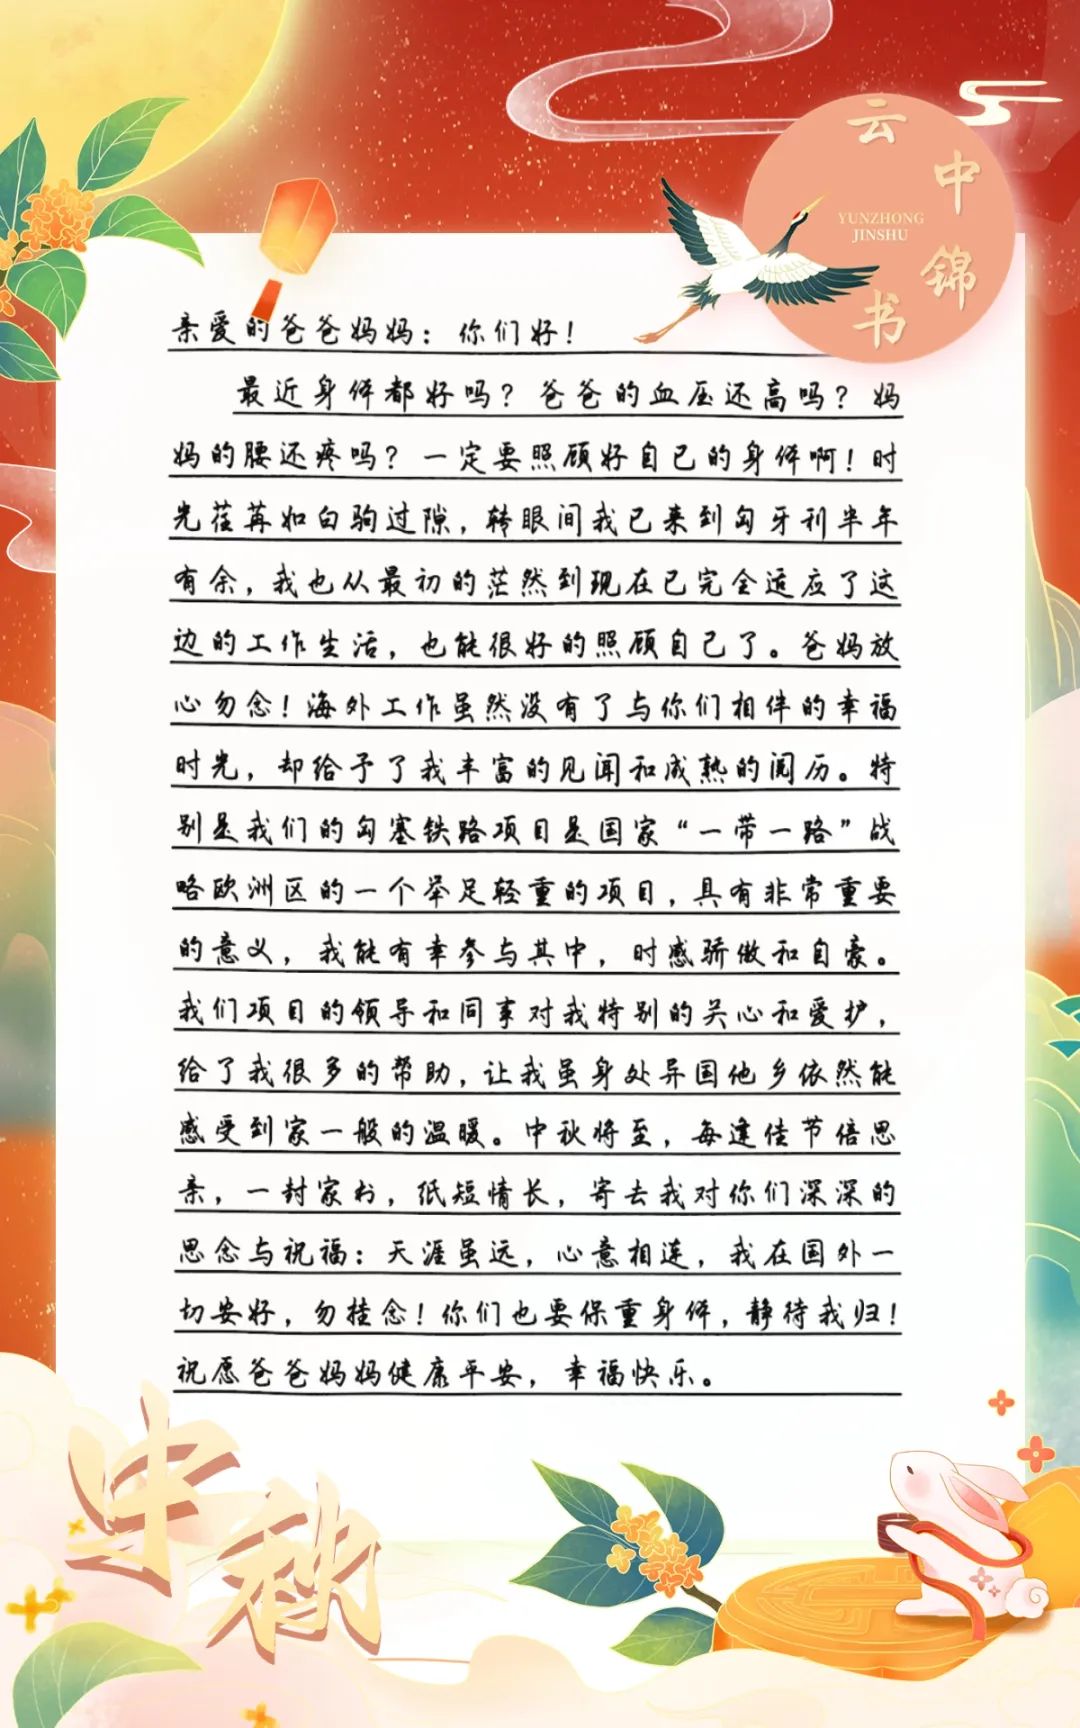 云中锦书
YUNZHONG
JINSHU
亲爱的爸爸妈妈：你们好！
最近身体都好吗？爸爸的血压还高吗？妈
妈的腰还疼吗？一定要照顾好自己的身体啊！时
光荏苒如白驹过隙，转眼间我已来到匈牙利半年
有余，我也从最初的茫然到现在已完全适应了这
边的工作生活，也能很好的照顾自己了。爸妈放
心勿念！海外工作虽然没有了与你们相伴的幸福
时光，却给予了我丰富的见闻和成熟的阅历。特
别是我们的匈塞铁路项目是国家“一带一路”战
略欧洲区的一个举足轻重的项目，具有非常重要
的意义，我能有幸参与其中，时感骄傲和自豪。
我们项目的领导和同事对我特别的关心和爱护，
给了我很多的帮助，让我虽身处异国他乡依然能
感受到家一般的温暖。中秋将至，每逢佳节倍思
亲，一封家书，纸短情长，寄去我对你们深深的
思念与祝福：天涯虽远，心意相连，我在国外一
切安好，勿挂念！你们也要保重身体，静待我归！
祝愿爸爸妈妈健康平安，幸福快乐。
中秋